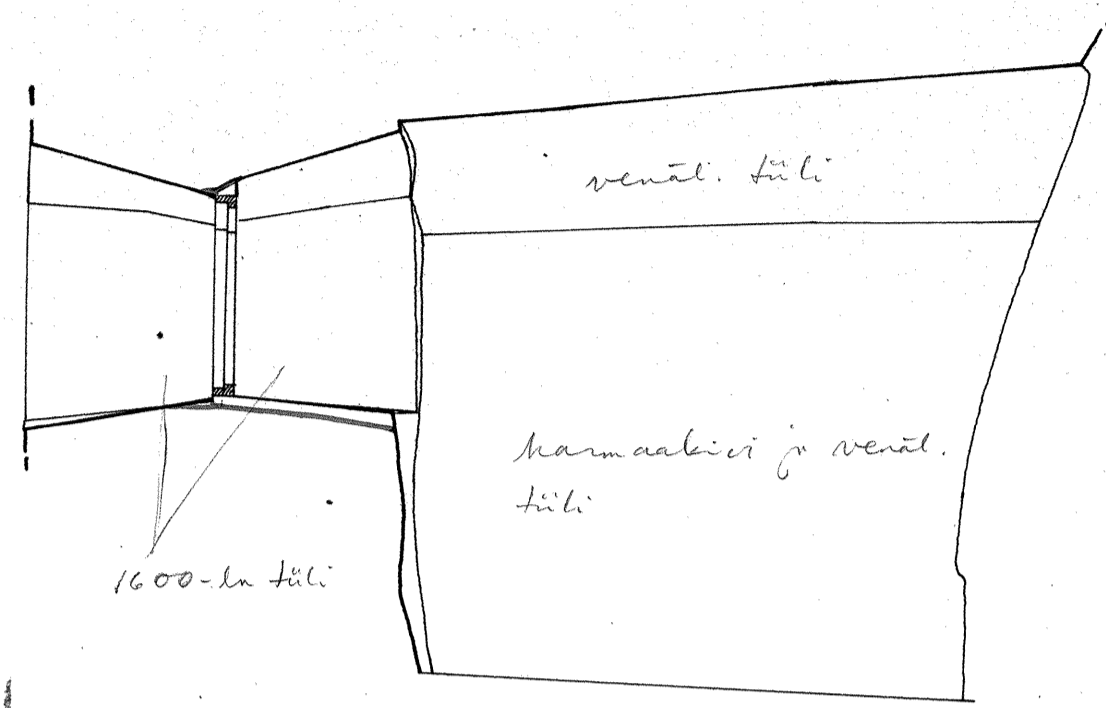 venäl. tiili
harmaakivi ja venäl.
tiili
1600-ln tiili